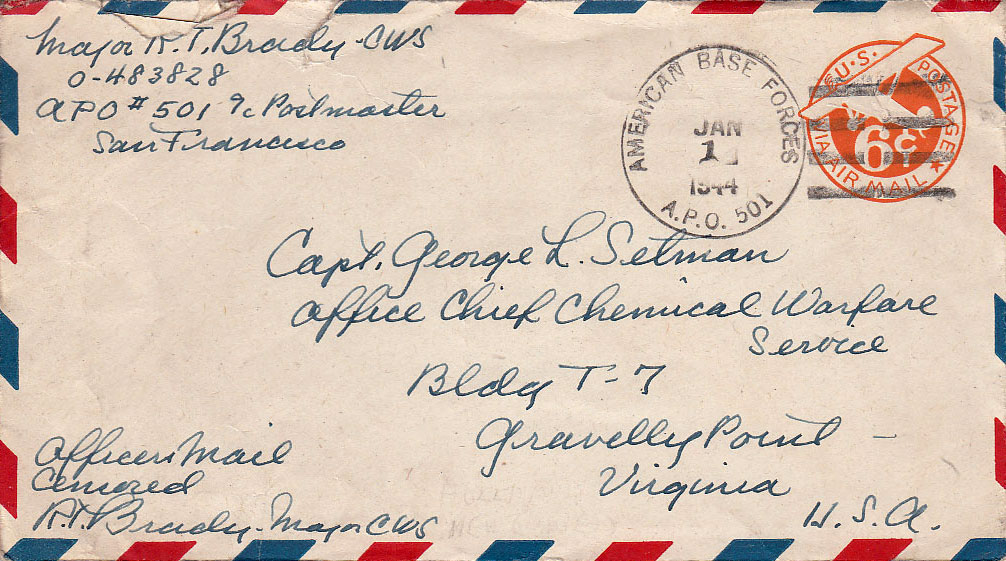 Major R. T. Brady - CWS
O-483828
APO # 501 % Postmaster
San Francisco
AMERICAN BASE FORCES
JAN
1
1944
A.P.O. 501
U.S. POSTAGE
6¢
VIA AIR MAIL
Capt. George L. Setman
Office Chief Chemical Warfare
Service
Bldg T-7
Gravelly Point -
Virginia
U.S.A.
Officers Mail
Censored
R.T. Brady - Major CWS